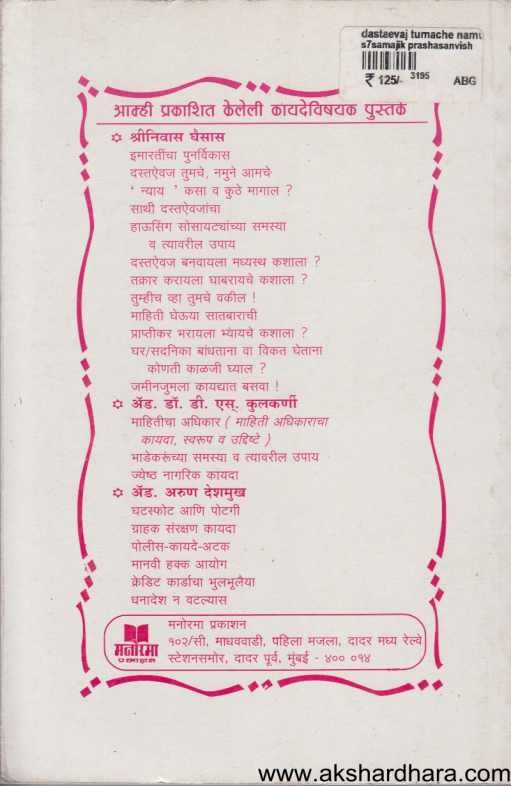 dastaevaj tumache namu
s7samajik prashasanvish
₹ 125/- 3195 ABG
आम्ही प्रकाशित केलेली कायदेविषयक पुस्तके
श्रीनिवास घैसास
इमारतींचा पुनर्विकास
दस्तऐवज तुमचे, नमुने आमचे
' न्याय ' कसा व कुठे मागाल ?
साथी दस्तऐवजांचा
हाऊसिंग सोसायट्यांच्या समस्या
व त्यावरील उपाय
दस्तऐवज बनवायला मध्यस्थ कशाला ?
तक्रार करायला घाबरायचे कशाला ?
तुम्हीच व्हा तुमचे वकील !
माहिती घेऊया सातबाराची
प्राप्तीकर भरायला भ्यायचे कशाला ?
घर/सदनिका बांधताना वा विकत घेताना
कोणती काळजी घ्याल ?
जमीनजुमला कायद्यात बसवा !
ॲड. डॉ. डी. एस्. कुलकर्णी
माहितीचा अधिकार ( माहिती अधिकाराचा
कायदा, स्वरूप व उद्दिष्टे )
भाडेकरूंच्या समस्या व त्यावरील उपाय
ज्येष्ठ नागरिक कायदा
ॲड. अरुण देशमुख
घटस्फोट आणि पोटगी
ग्राहक संरक्षण कायदा
पोलीस-कायदे-अटक
मानवी हक्क आयोग
क्रेडिट कार्डाचा भुलभूलैया
धनादेश न वटल्यास
मनोरमा प्रकाशन
मनोरमा
प्रकाशन
१०२/सी, माधववाडी, पहिला मजला, दादर मध्य रेल्वे
स्टेशनसमोर, दादर पूर्व, मुंबई - ४०० ०१४
www.akshardhara.com